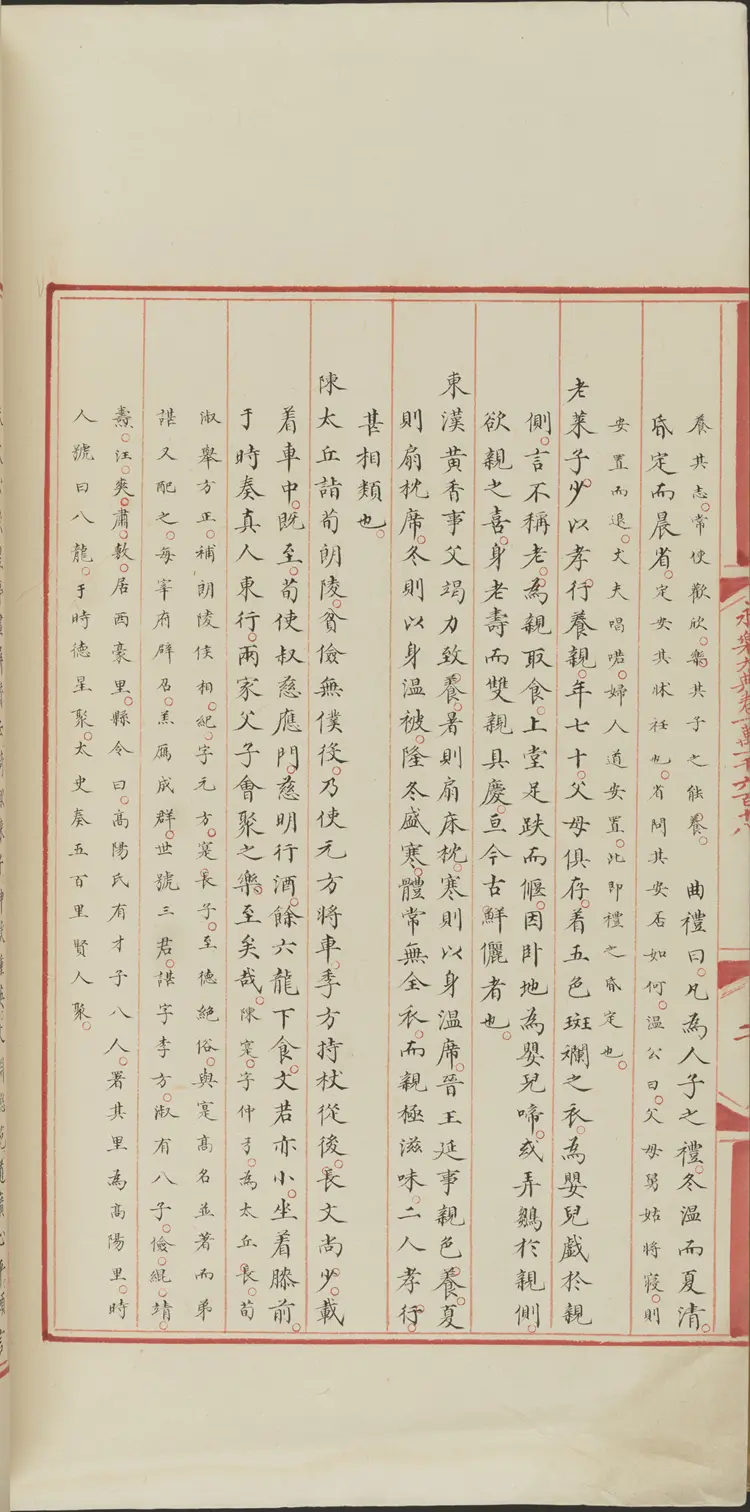 永樂大典卷一萬一千六百十八
二
養其志。常使歡欣。樂其子之能養。 曲禮曰。凡為人子之禮。冬溫而夏凊。
昏定而晨省。定安其牀衽也。省問其安否如何。溫公曰。父母舅姑將寢。則
安置而退。丈夫唱喏。婦人道安置。此即禮之昏定也。
老萊子。少以孝行養親。年七十。父母俱存。着五色斑斕之衣。為嬰兒戲於親
側。言不稱老。為親取食。上堂足跌而偃。因卧地為嬰兒啼。或弄鶵於親側。
欲親之喜。身老壽而雙親具慶。亘今古鮮儷者也。
東漢黃香事父竭力致養。暑則扇床枕。寒則以身溫席。晉王延事親色養。夏
則扇枕席。冬則以身溫被。隆冬盛寒。體常無全衣。而親極滋味。二人孝行。
甚相類也。
陳太丘詣荀朗陵。貧儉無僕役。乃使元方將車。季方持杖從後。長文尚少。載
着車中。既至。荀使叔慈應門。慈明行酒。餘六龍下食。文若亦小。坐着膝前。
于時奏真人東行。兩家父子會聚之樂。至矣哉。陳寔。字仲弓。為太丘長。荀
淑舉方正。補朗陵侯相。紀。字元方。寔長子。至德絕俗。與寔高名並著。而弟
諶又配之。每宰府辟召。羔鴈成群。世號三君。諶字季方。淑有八子。儉。緄。靖。
燾。汪。爽。肅。敷。居西豪里。縣令曰。高陽氏有才子八人。署其里為高陽里。時
人號曰八龍。于時德星聚。太史奏五百里賢人聚。